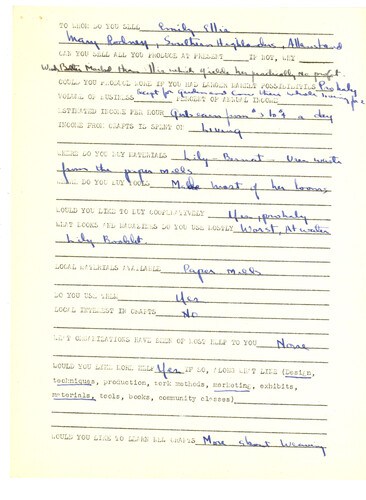 TO WHOM DO YOU SELL Emily Ellis
Mary Rodney, Southern Highlanders, Allanstand
CAN YOU SELL ALL YOU PRODUCE AT PRESENT IF NOT, WHY
Wish Better Market than this which yields her practically no profit.
COULD YOU PRODUCE MORE IF YOU HAD LARGER MARKET POSSIBILITIES Probably
Except for garden and cows these whole living for 2
VOLUME OF BUSINESS PERCENT OF ANNUAL INCOME
ESTIMATED INCOME PER HOUR Gets from
a day
INCOME FROM CRAFTS IS SPENT ON Living
WHERE DO YOU BUY MATERIALS Lily - Bernat - Uses waste
from the paper mills
WHERE DO YOU BUY TOOLS Makes most of her looms
WOULD YOU LIKE TO BUY COOPERATIVELY Yes, probably
WHAT BOOKS AND MAGAZINES DO YOU USE MOSTLY Worst, Atwater
Lily Booklet
LOCAL MATERIALS AVAILABLE Paper Mills
DO YOU USE THEM Yes
LOCAL INTEREST IN CRAFTS No
WHAT ORGANIZATIONS HAVE BEEN OF MOST HELP TO YOU None
WOULD YOU LIKE MORE HELP Yes IF SO, ALONG WHAT LINE (Design,
techniques, production, work methods, marketing, exhibits,
materials, tools, books, community classes)
WOULD YOU LIKE TO LEARN NEW CRAFTS More about Weaving